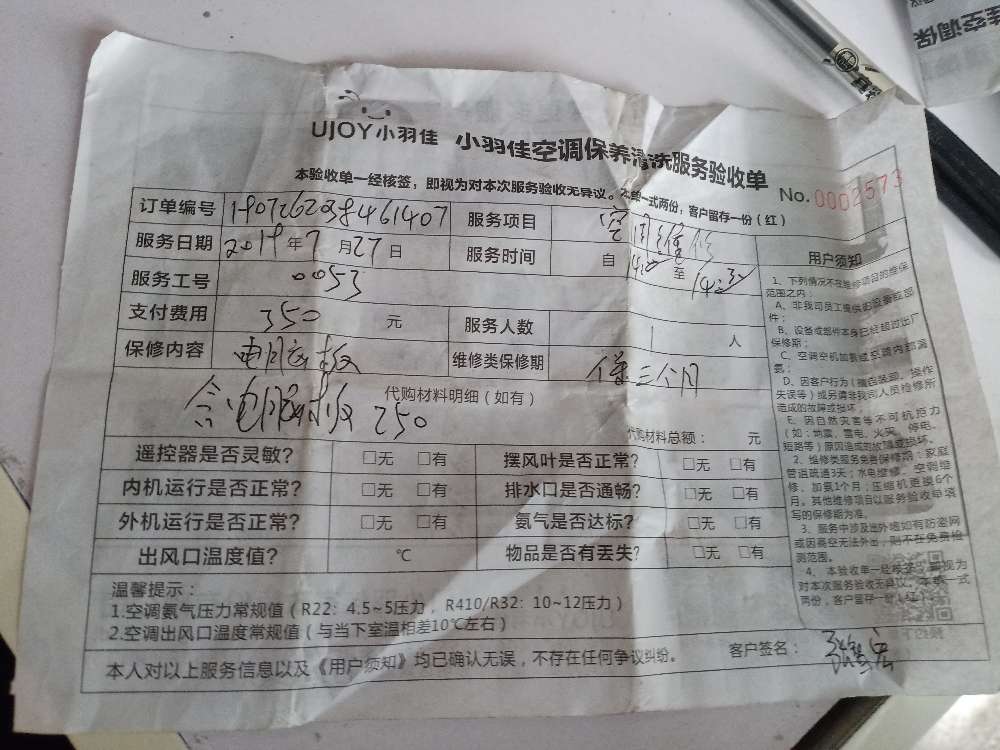 UJOY小羽佳 小羽佳空调保养清洗服务验收单
本验收单一经核签，即视为对本次服务验收无异议。本单一式两份，客户留存一份(红)
No. 0002573
订单编号 服务项目 空调维修
服务日期 2019年7月27日 服务时间 自 至
服务工号 0053
支付费用 350 元 服务人数 人
保修内容 维修类保修期 保三个月
代购材料明细（如有）
250
代购材料总额： 元
遥控器是否灵敏? □无 □有 摆风叶是否正常? □无 □有
内机运行是否正常? □无 □有 排水口是否通畅? □无 □有
外机运行是否正常? □无 □有 氨气是否达标? □无 □有
出风口温度值? ℃ 物品是否有丢失? □无 □有
温馨提示：
1.空调氨气压力常规值（R22：4.5~5压力，R410/R32：10~12压力）
2.空调出风口温度常规值（与当下室温相差10℃左右）
本人对以上服务信息以及《用户须知》均已确认无误，不存在任何争议纠纷。 客户签名：
用户须知
1、下列情况不在维修项目的维保
范围之内：
A、非我司员工提供的设备或部
件；
B、设备或部件本身已经超过出厂
保修期；
C、空调空机加氨或空调内部漏
氨；
D、因客户行为（擅自装卸、操作
失误等）或另请非我司人员检修所
造成的故障或损坏；
E、因自然灾害等不可抗拒力
（如：地震、雷电、火灾、停电、
短路等）原因造成的故障或损坏。
2、维修类服务免费保修期：家庭
管道疏通3天；水电维修、空调维
修、加氨1个月；压缩机更换6个
月，其他维修项目以服务验收单填
写的保修期为准。
3、服务中涉及出外墙如有防盗网
或因悬空无法外出，则不在免费检
测范围。
4、本验收单一经核签，即视为
对本次服务验收无异议。本单一式
两份，客户留存一份(红)